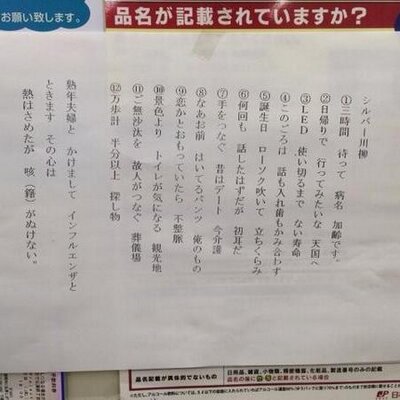 お願い致します。
品名が記載されていますか?
シルバー川柳
①三時間 待って 病名 加齢です。
②日帰りで 行ってみたいな 天国へ
③LED 使い切るまで ない寿命
④このごろは 話も入れ歯も かみ合わず
⑤誕生日 ローソク吹いて 立ちくらみ
⑥何回も 話したはずだが 初耳だ
⑦手をつなぐ 昔はデート 今介護
⑧なあお前 はいてるパンツ 俺のもの
⑨恋かとおもっていたら 不整脈
⑩景色より トイレが気になる 観光地
⑪ご無沙汰を 故人がつなぐ 葬儀場
⑫万歩計 半分以上 探し物
熟年夫婦と かけまして インフルエンザと
ときます その心は
熱はさめたが 咳(籍)がぬけない。
品名記載が具体的でないもの
日用品、雑貨、小物類、精密機器、化粧品、製造番号のみの記載
品名の後に
と記載されている場合